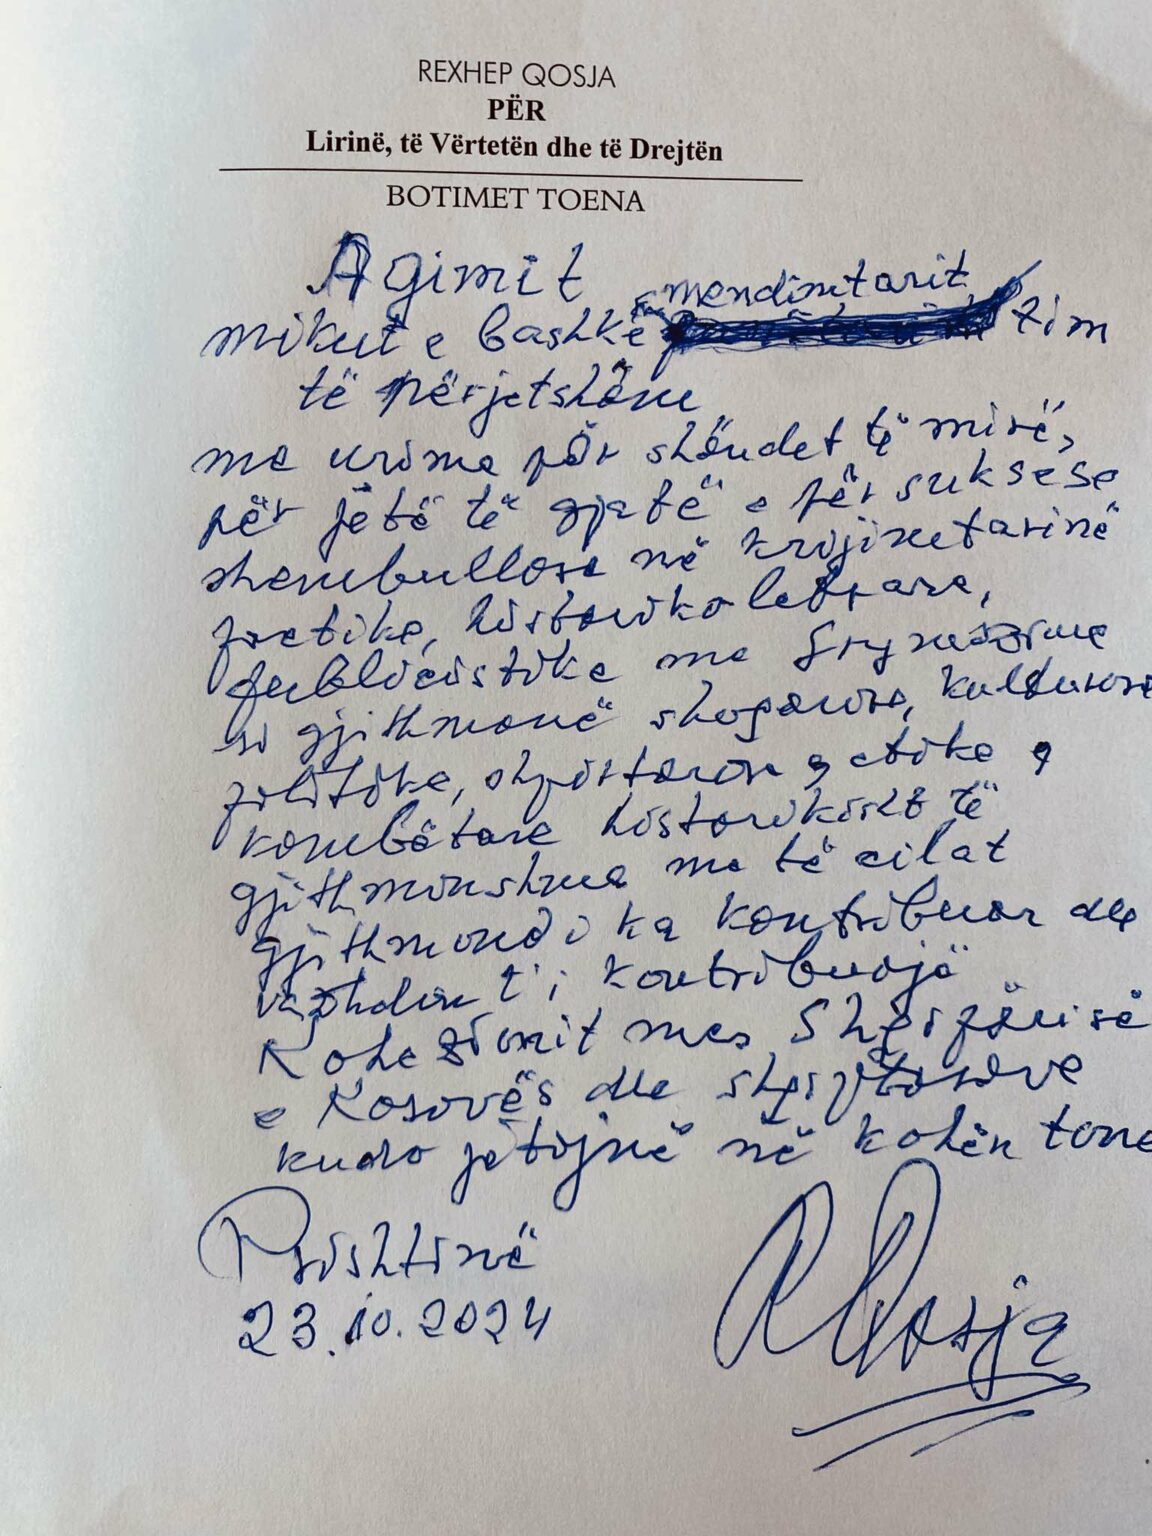 REXHEP QOSJA
PËR
Lirinë, të Vërtetën dhe të Drejtën
BOTIMET TOENA
Agimit
mendimtarit
mikut e bashkë tim
të përjetshëm
me urime për shëndet të mirë,
për jetë të gjatë e për suksese
shembullore në krijimtarinë
poetike, historiko letrare,
publicistike me frymëzime
si gjithmonë shoqërore, kulturore
politike, shpirtërore, etike e
kombëtare historikisht të
gjithmonshme me të cilat
gjithmonë i ka kontribuar dhe
vazhdon t'i kontribuojë
Kohezionit mes Shqipërisë
e Kosovës dhe shqiptarëve
kudo jetojnë në kohën tone
Prishtinë
23.10.2024
R Qosja